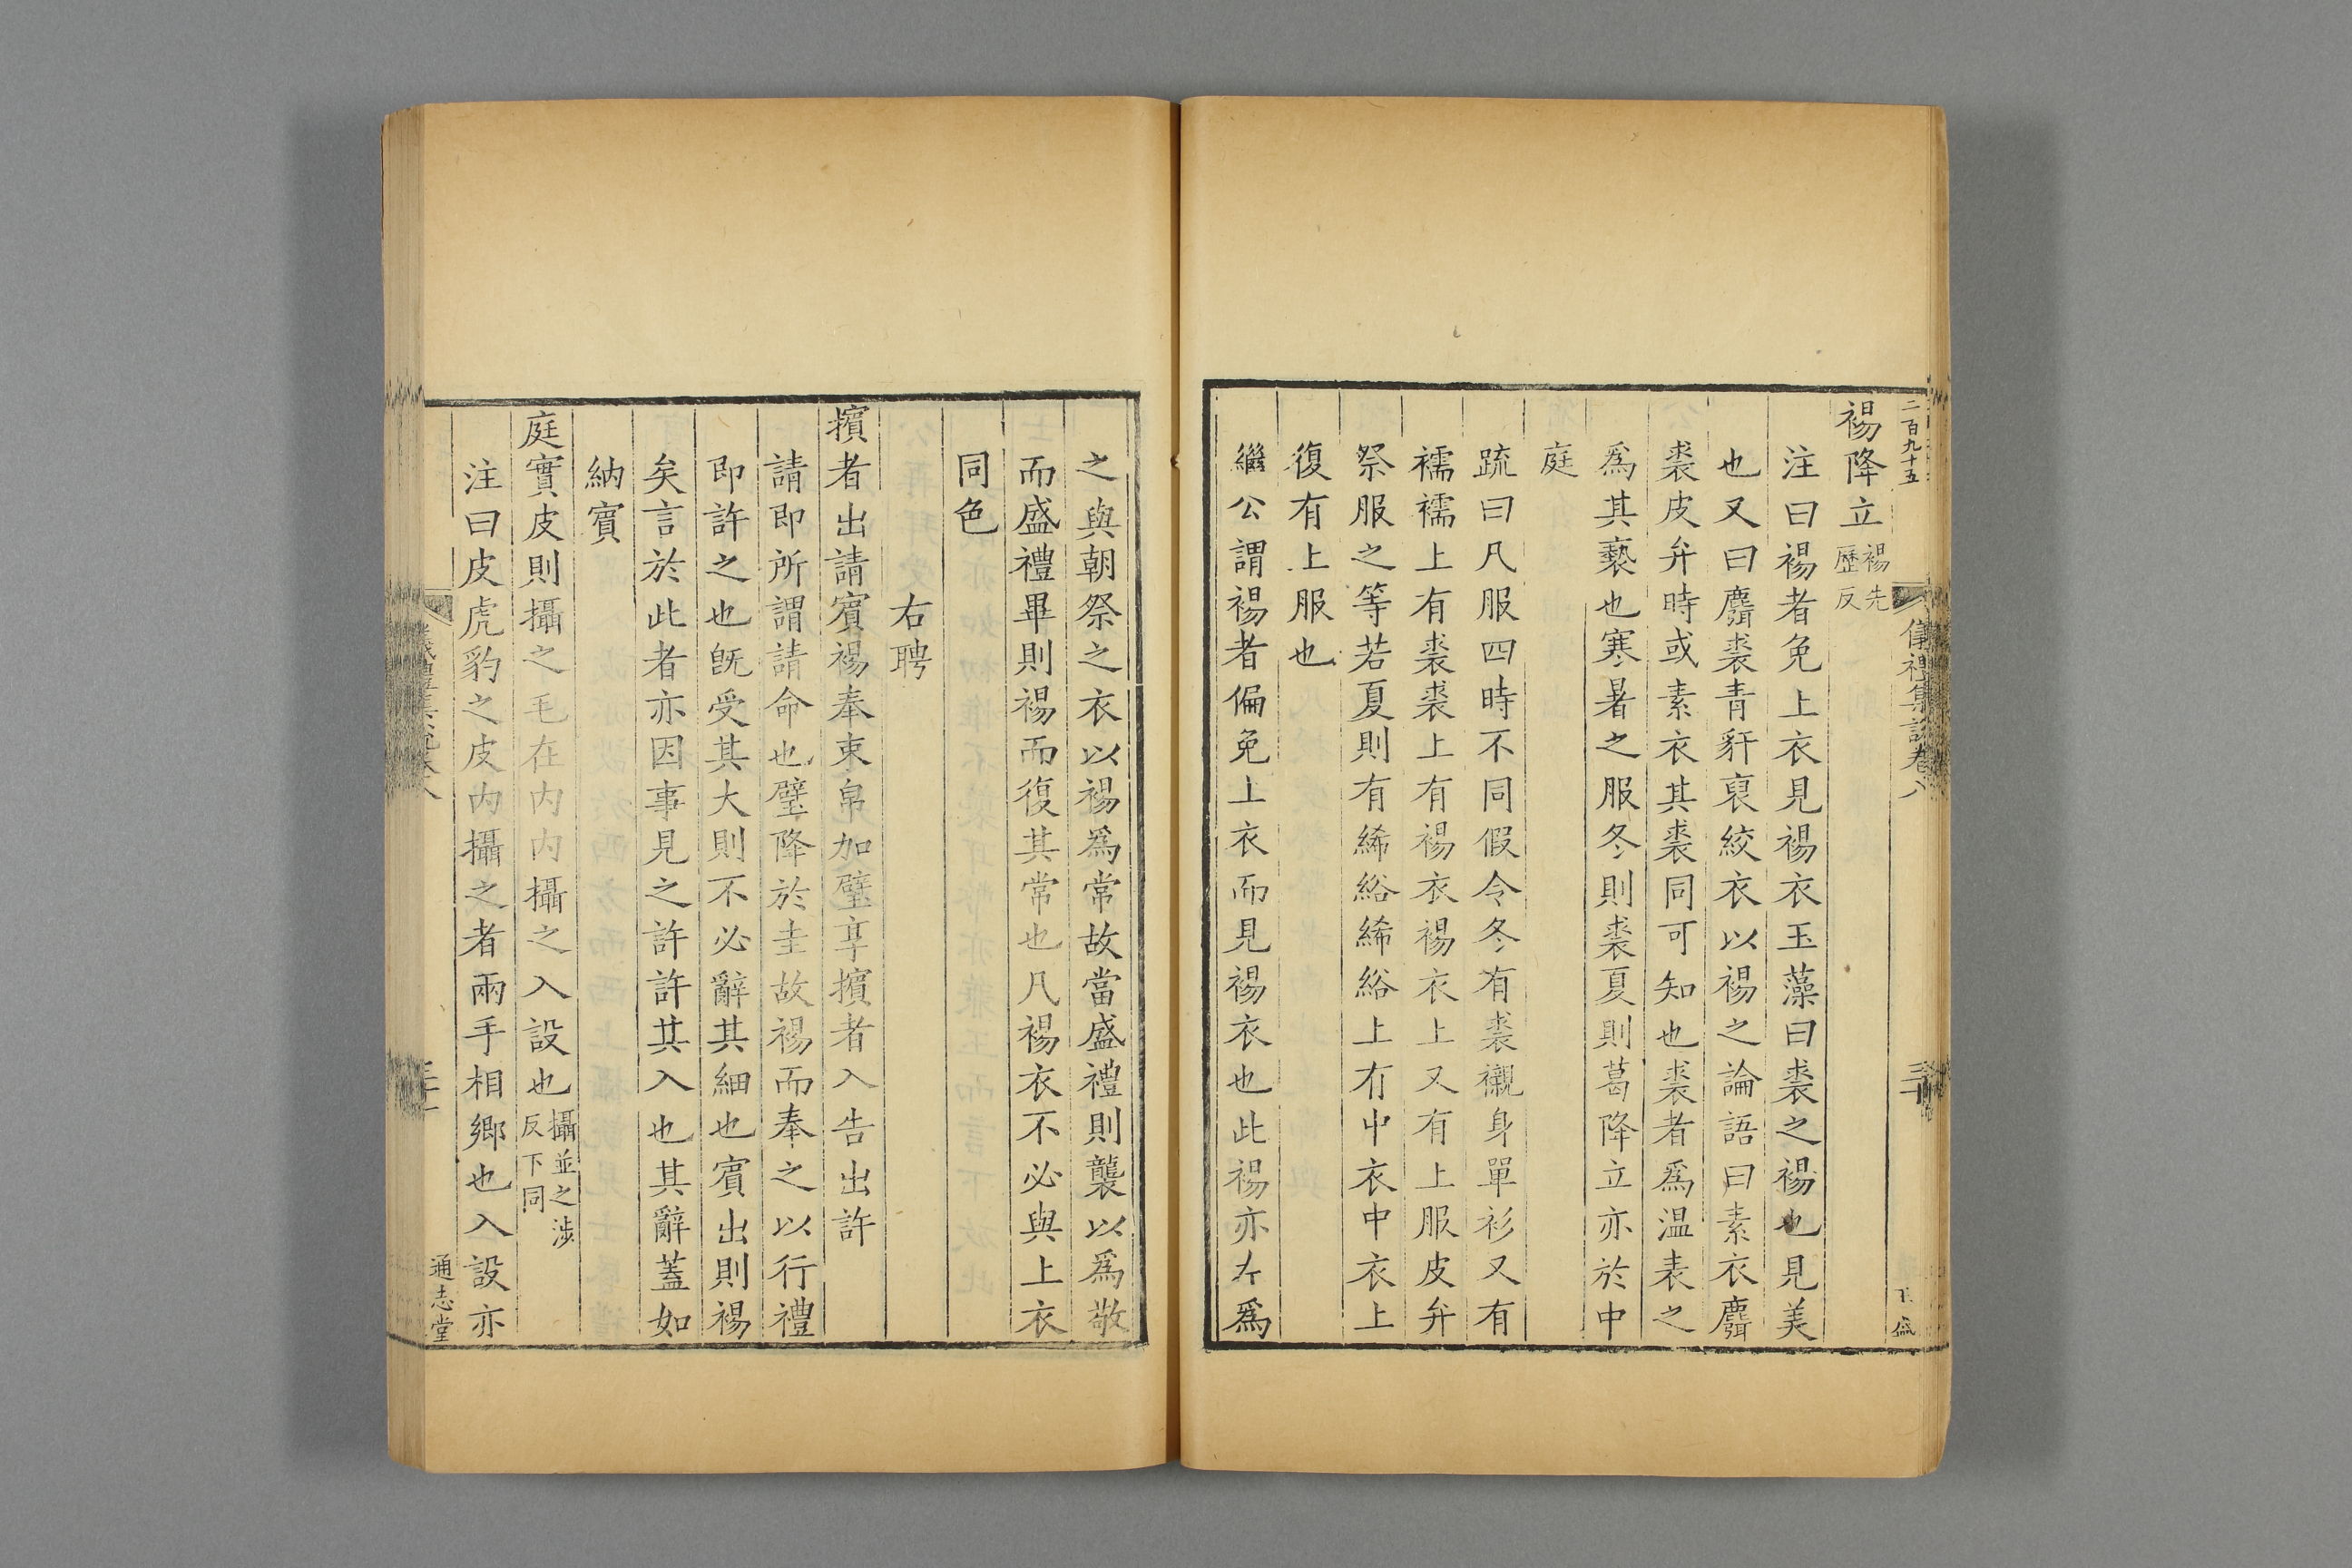 二百九十五
儀禮集說卷八
三十
裼降立裼先歷反
注曰裼者免上衣見裼衣玉藻曰裘之裼也見美
也又曰麛裘青豻裦絞衣以裼之論語曰素衣麛
裘皮弁時或素衣其裘同可知也裘者爲温表之
爲其褻也寒暑之服冬則裘夏則葛降立亦於中
庭
疏曰凡服四時不同假令冬有裘襯身單衫又有
襦襦上有裘裘上有裼衣裼衣上又有上服皮弁
祭服之等若夏則有絺綌絺綌上有中衣中衣上
復有上服也
繼公謂裼者偏免上衣而見裼衣也此裼亦左爲
之與朝祭之衣以裼爲常故當盛禮則襲以爲敬
而盛禮畢則裼而復其常也凡裼衣不必與上衣
同色
右聘
擯者出請賓裼奉束帛加璧享擯者入告出許
請即所謂請命也璧降於圭故裼而奉之以行禮
即許之也旣受其大則不必辭其細也賓出則裼
矣言於此者亦因事見之許許其入也其辭蓋如
納賓
庭實皮則攝之毛在内内攝之入設也攝並之涉反下同
注曰皮虎豹之皮内攝之者兩手相鄉也入設亦
通志堂